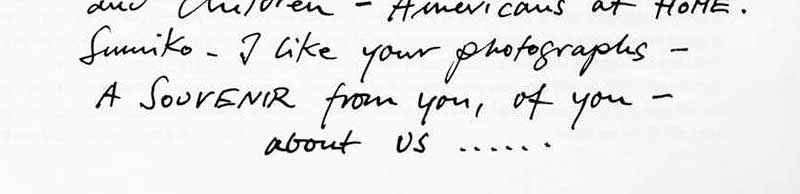 and Children – Americans at HOME.
Sumiko – I like your photographs –
A SOUVENIR from you, of you –
about US ......